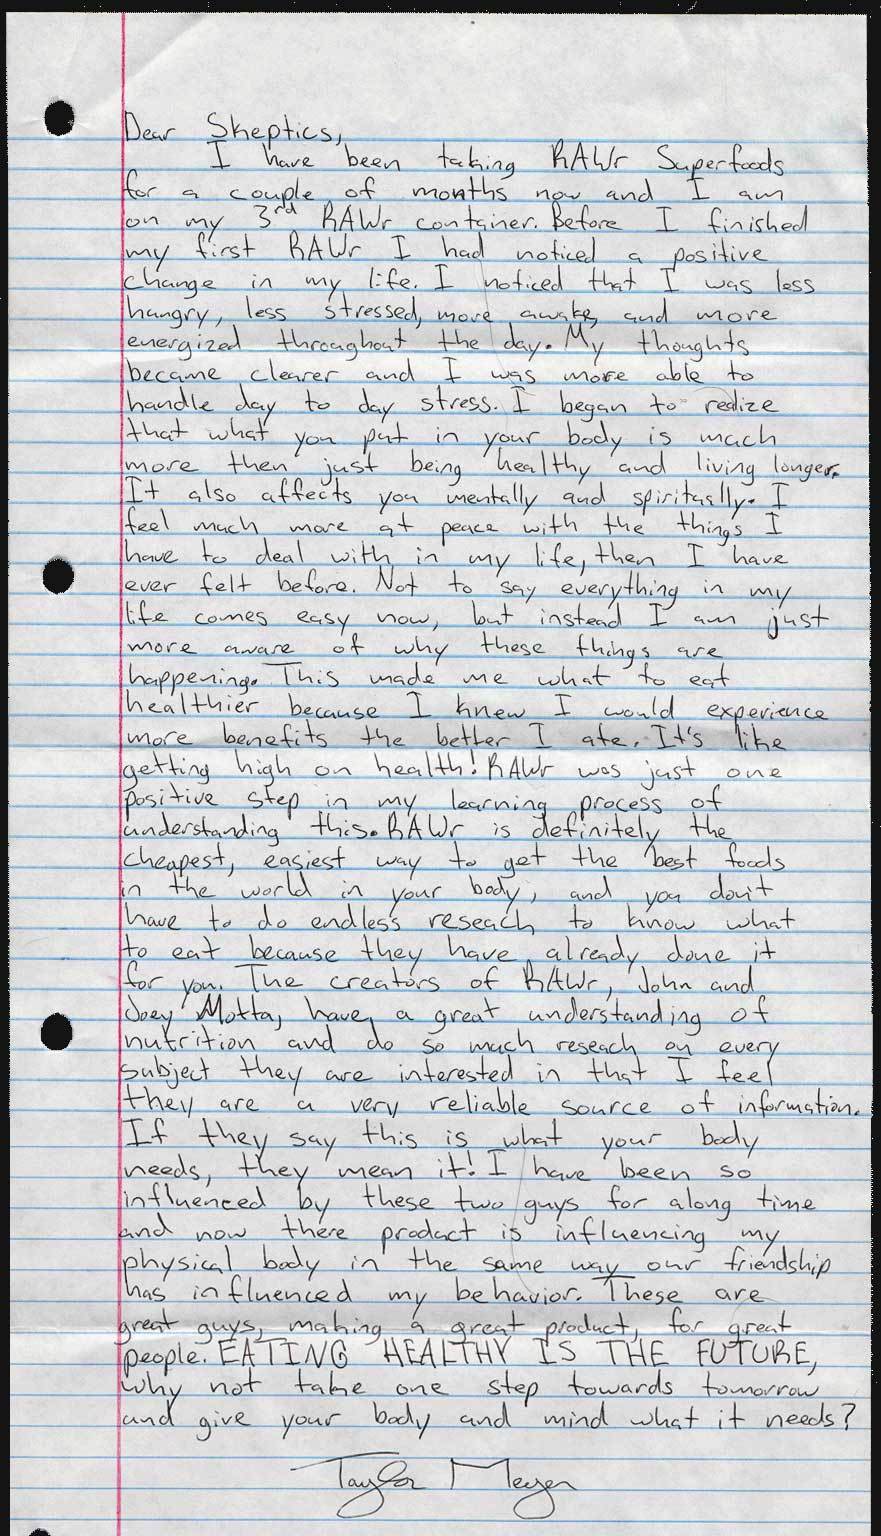 Dear Skeptics,
I have been taking RAWr Superfoods
for a couple of months now and I am
on my 3rd RAWr container. Before I finished
my first RAWr I had noticed a positive
change in my life. I noticed that I was less
hungry, less stressed, more awake, and more
energized throughout the day. My thoughts
became clearer and I was more able to
handle day to day stress. I began to realize
that what you put in your body is much
more then just being healthy and living longer.
It also affects you mentally and spiritually. I
feel much more at peace with the things I
have to deal with in my life, then I have
ever felt before. Not to say everything in my
life comes easy now, but instead I am just
more aware of why these things are
happening. This made me what to eat
healthier because I knew I would experience
more benefits the better I ate. It's like
getting high on health! RAWr was just one
positive step in my learning process of
understanding this. RAWr is definitely the
cheapest, easiest way to get the best foods
in the world in your body, and you don't
have to do endless reseach to know what
to eat because they have already done it
for you. The creators of RAWr, John and
Joey Motta, have a great understanding of
nutrition and do so much reseach on every
subject they are interested in that I feel
they are a very reliable source of information.
If they say this is what your body
needs, they mean it! I have been so
influenced by these two guys for along time
and now there product is influencing my
physical body in the same way our friendship
has influenced my behavior. These are
great guys, making a great product, for great
people. EATING HEALTHY IS THE FUTURE,
why not take one step towards tomorrow
and give your body and mind what it needs?
Taylor Meyer